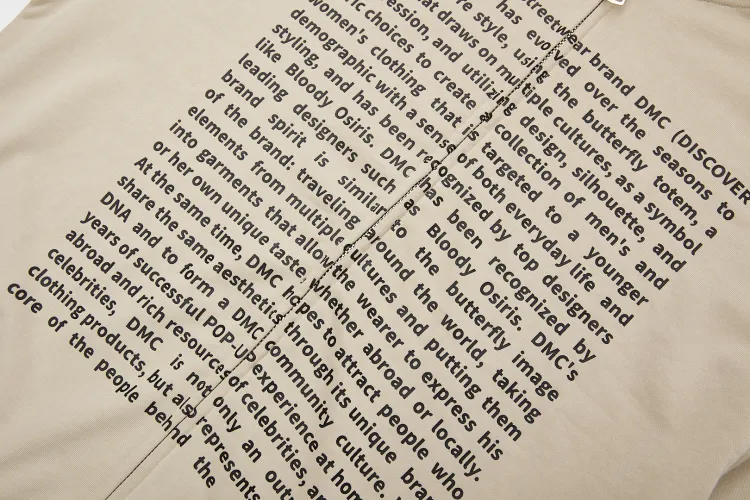 Streetwear brand DMC (DISCOVER
has evolved over the seasons to
re style, using the butterfly totem, a
at draws on multiple cultures, as a symbol
ession, and utilizing design, silhouette, and
ic choices to create a collection of men's and
women's clothing that is targeted to a younger
demographic with a sense of both everyday life and
styling, and has been recognized by top designers
like Bloody Osiris. DMC has been recognized by
leading designers such as Bloody Osiris. DMC's
brand spirit is similar to the butterfly image
of the brand: traveling around the world, taking
elements from multiple cultures and putting them
into garments that allow the wearer to express his
or her own unique taste. Whether abroad or locally.
At the same time, DMC hopes to attract people who
share the same aesthetics through its unique bra
DNA and to form a DMC community culture.
years of successful POP-UP experience at hom
abroad and rich resources of celebrities, a
celebrities, DMC is not only an out
clothing products, but also represents
core of the people behind the